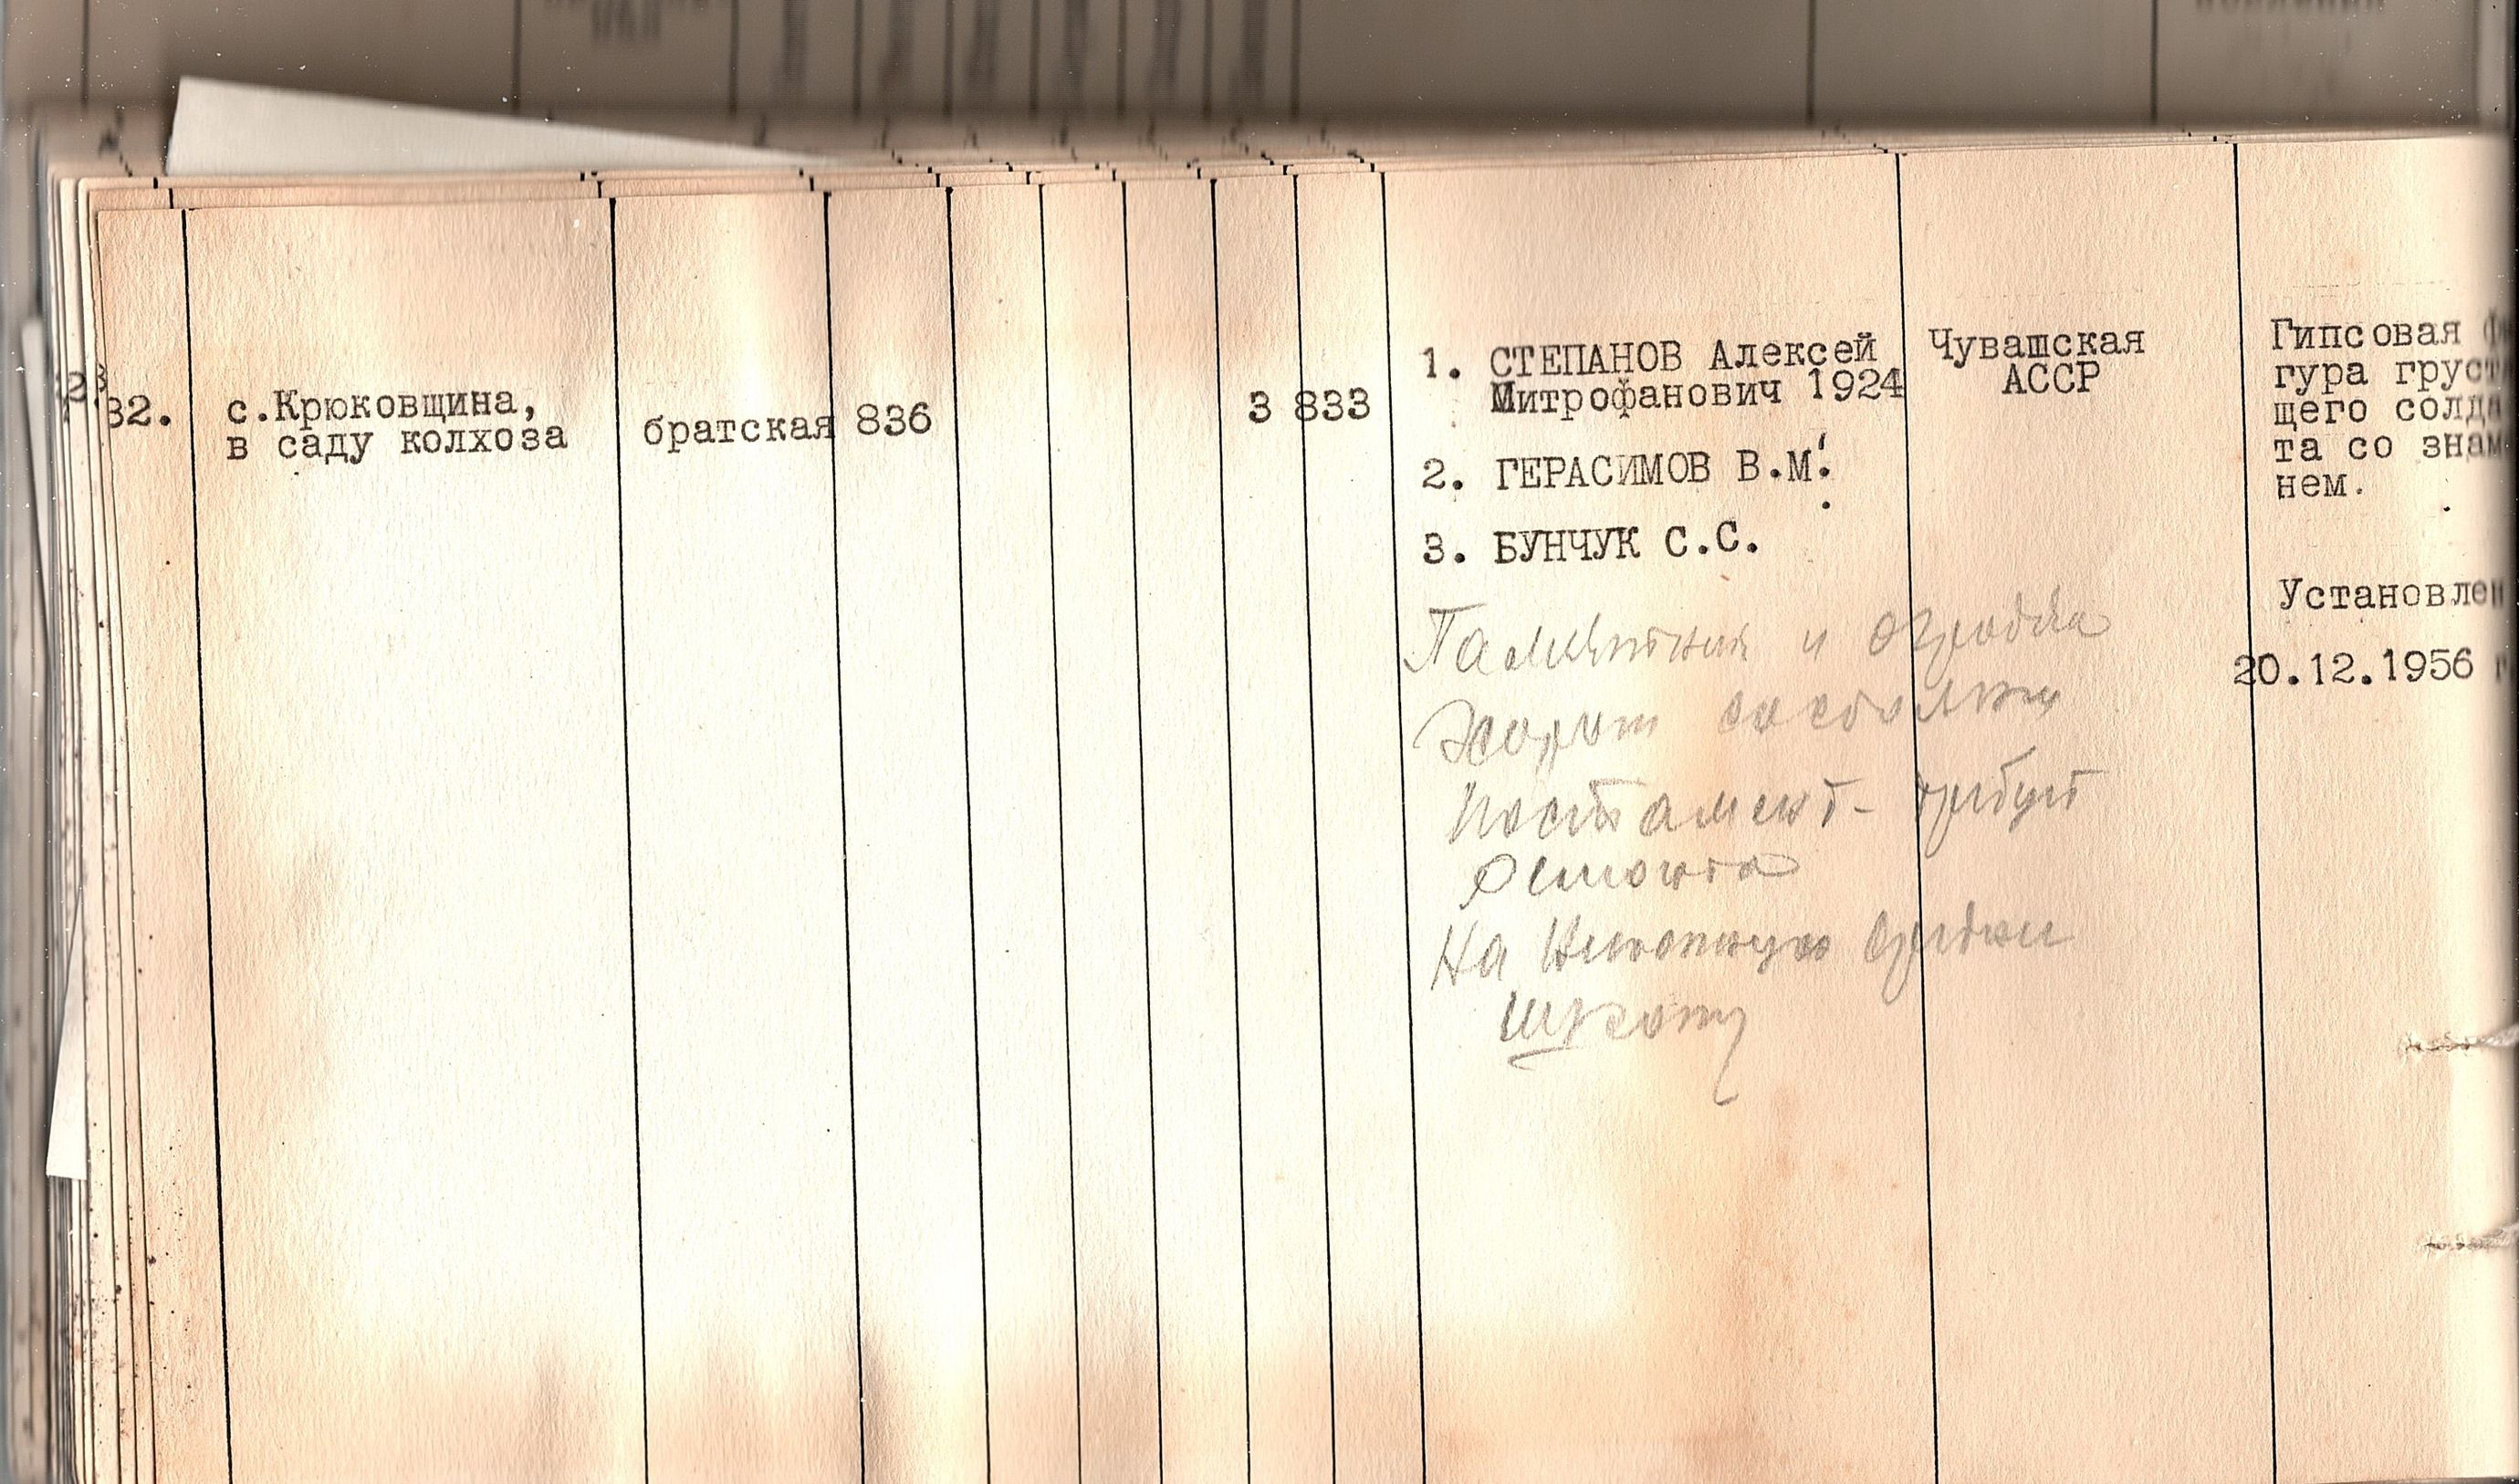 32.
с.Крюковщина,
в саду колхоза
братская
836
3
833
1. СТЕПАНОВ Алексей
Митрофанович 1924
2. ГЕРАСИМОВ В.М.
3. БУНЧУК С.С.
Чувашская
АССР
Гипсовая ф
гура груст
щего солда
та со знам
нем.
Установлен
20.12.1956 г
Памятник и ограда
постамент- требует
ремонта
На
школу